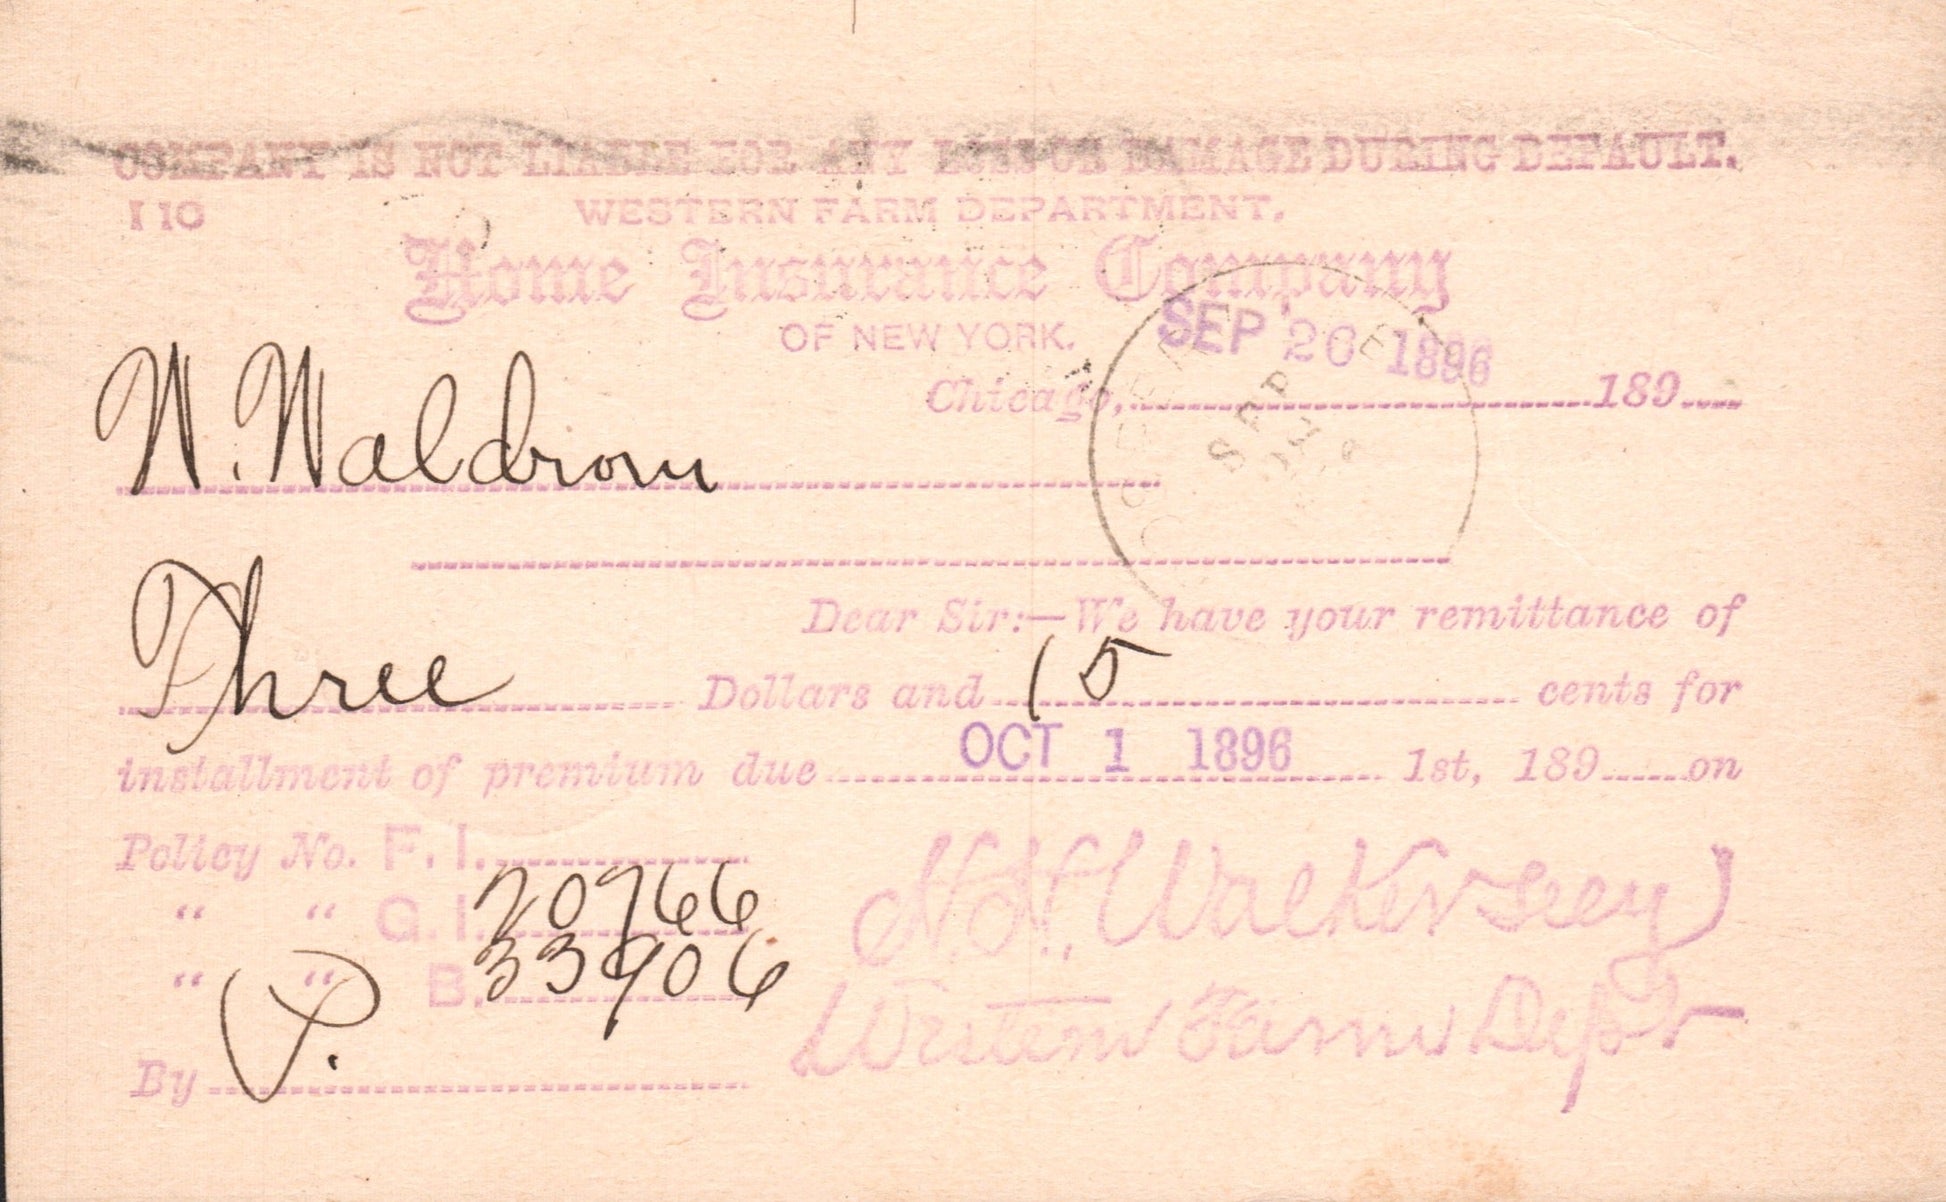 COMPANY IS NOT LIABLE FOR ANY LOSS OR DAMAGE DURING DEFAULT.
I 10 WESTERN FARM DEPARTMENT.
Home Insurance Company
OF NEW YORK.
SEP 26 1896
Chicago, 189
W. Waldrom
SEP
Dear Sir:—We have your remittance of
Three Dollars and 15 cents for
installment of premium due OCT 1 1896 1st, 189 on
Policy No. F. I.
“ “ G. I. 20766
“ “ B. 33906
Western Farm Dept
By P.